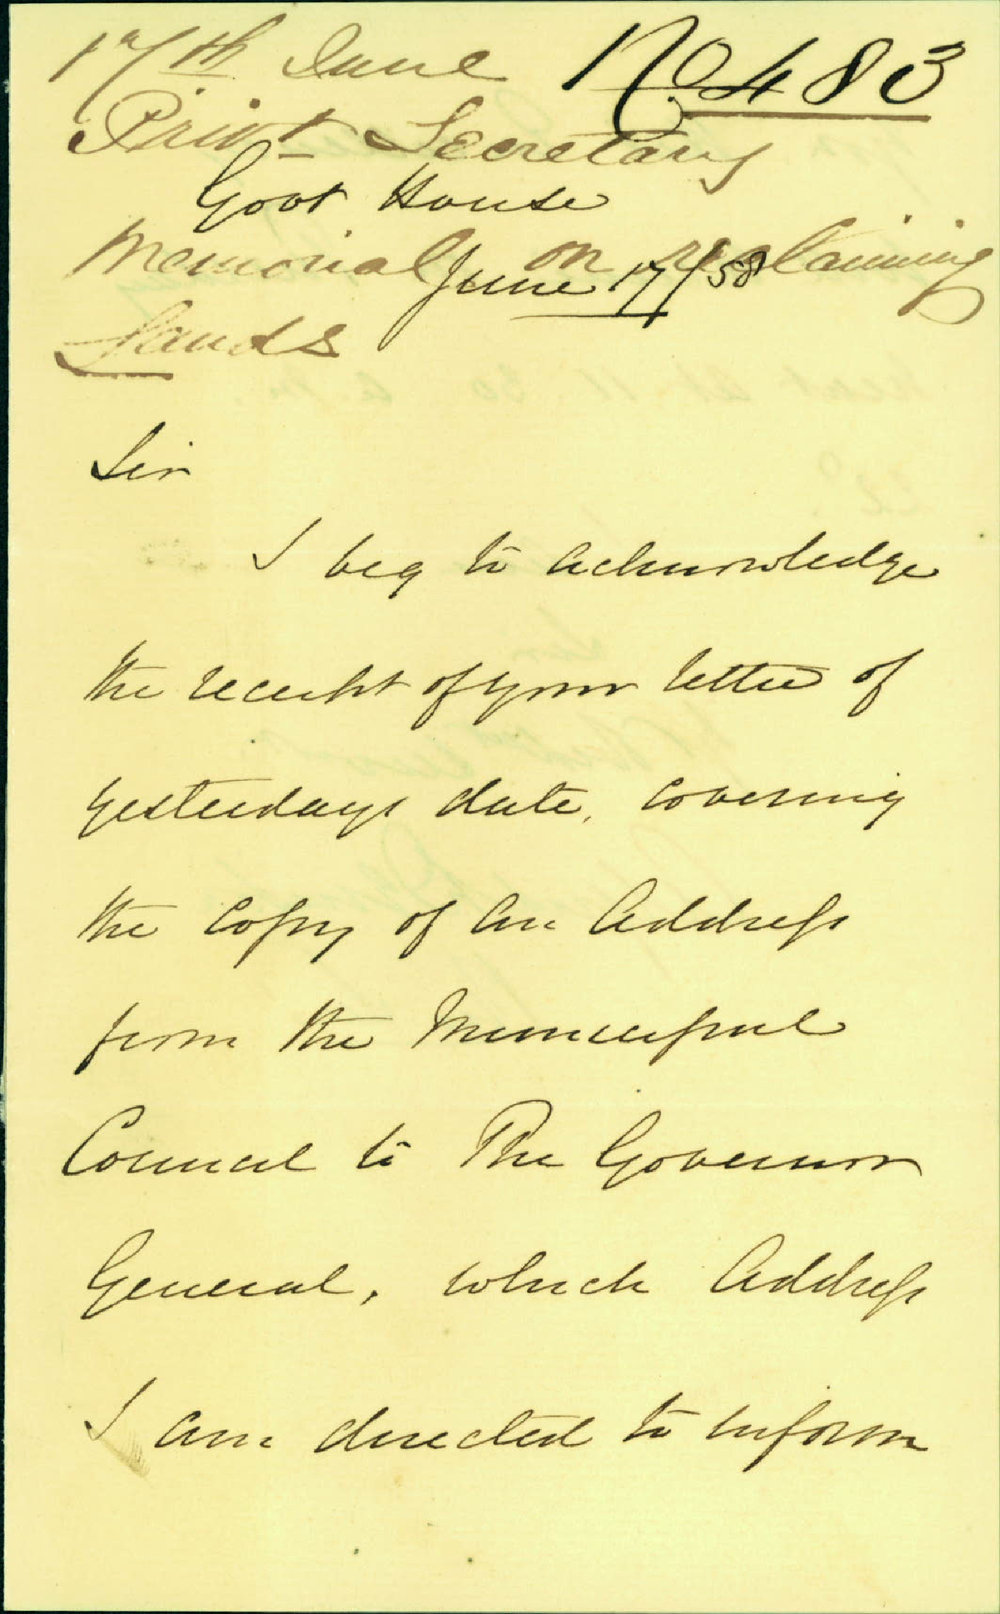 17th June No 483
Privt Secretary
Govt House
Memorial on reclaiming
June 17/58
Lands
Sir
I beg to acknowledge
the receipt of your letter of
yesterdays date, covering
the copy of an Address
from the Municipal
Council to The Governor
General, which Address
I am directed to inform